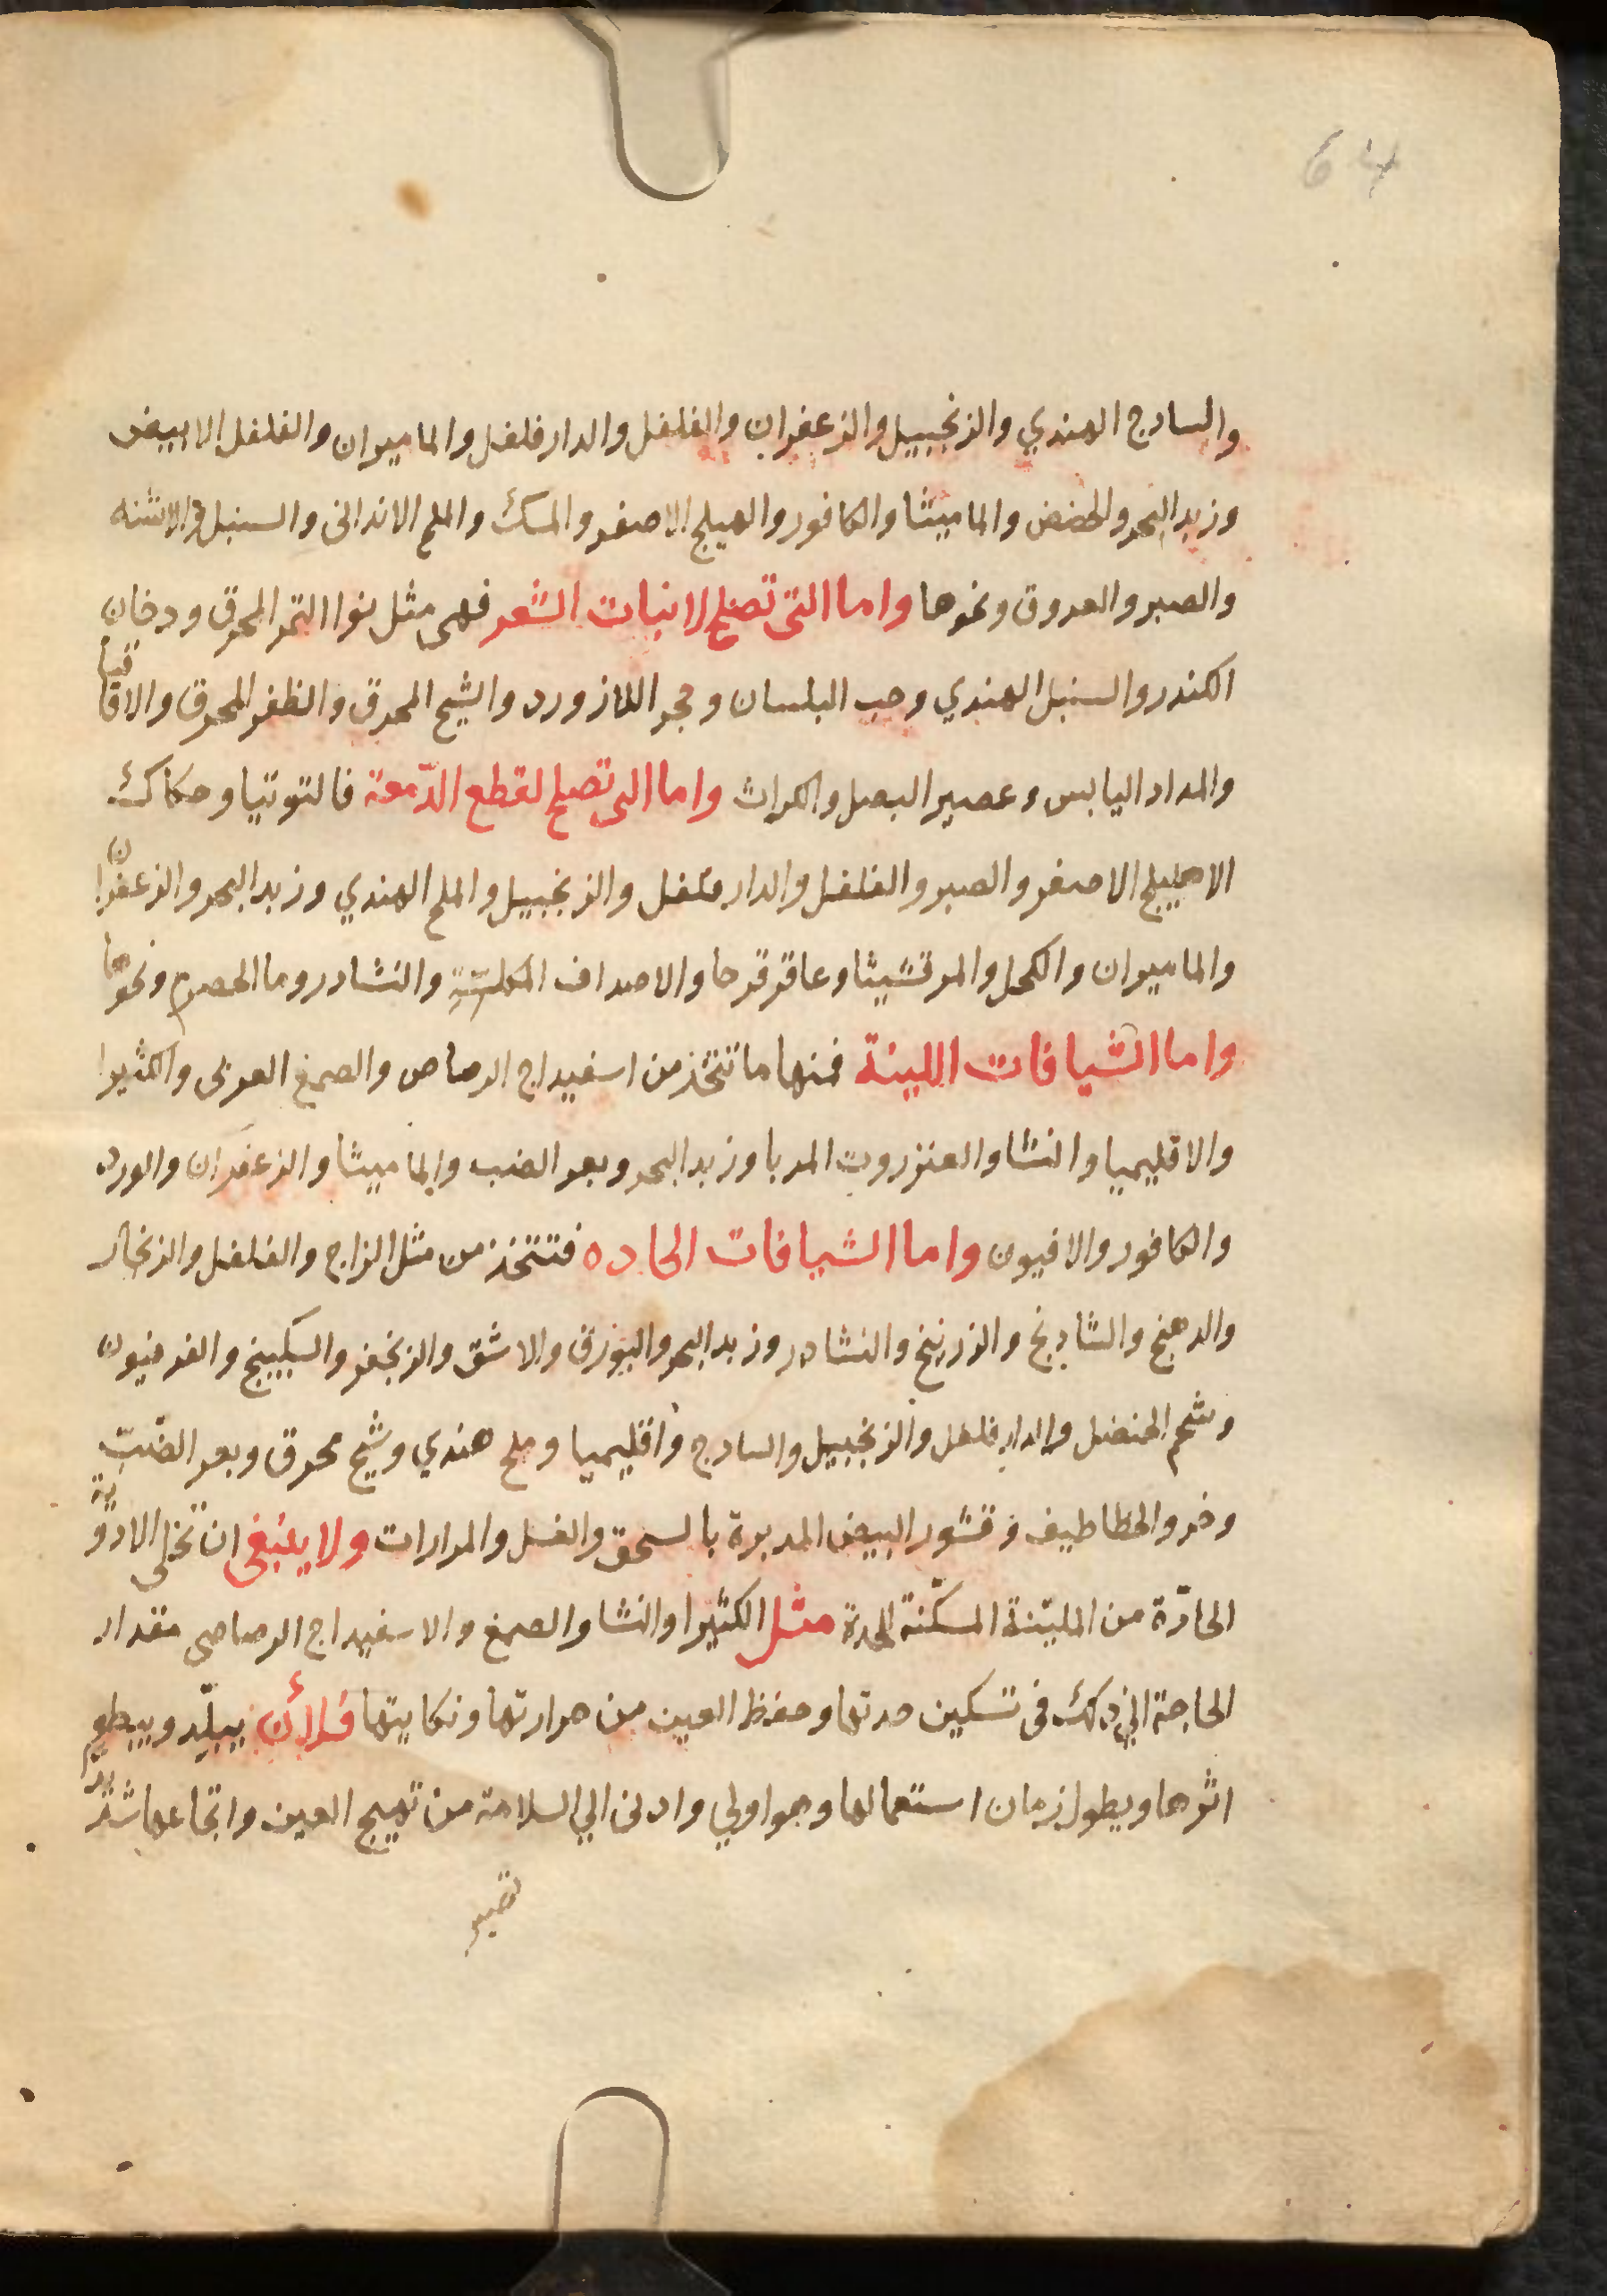 64
والسادج الهندي والزنجبيل والزعفران والفلفل والدار فلفل والماميران والفلفل الابيض
وزبد البحر والحضض والماميثا والكافور والهيلج الاصفر والمسك والملح الاندراني والسنبل والاشنه
والصبر والعروق ونحوها واما التى تصلح لانبات الشعر فهى مثل نوا التمر المحرق ودخان
الكندر والسنبل الهندي وحب البلسان وحجر اللازورد والشيح المحرق والظفر المحرق والاقاقيا
والمداد اليابس وعصير البصل والكراث واما التى تصلح لقطع الدّمعة فالتوتيا وحكاكة
الاهليلج الاصفر والصبر والفلفل والدار فلفل والزنجبيل والملح الهندي وزبد البحر والزعفران
والماميران والكحل والمرقشيثا وعاقرقرحا والاصداف المكلسة والنشادر وما الحصرم ونحوها
واما الشيافات اللينة فمنها ما تتخذ من اسفيداج الرصاص والصمغ العربى والكثيرا
والاقليميا والنشا والعنزروت المربا وزبد البحر وبعر الضب والماميثا والزعفران والورد
والكافور والافيون واما الشيافات الحاده فتتخذ من مثل الزاج والفلفل والزنجار
والدهنج والشادنج والزرنيخ والنشادر وزبد البحر والبورق والاشق والزنجفر والسكبينج والفرفيون
وشحم الحنضل والدار فلفل والزنجبيل والسادج واقليميا وملح هندي وشيح محرق وبعر الضبّ
وخرو الخطاطيف وقشور البيض المدبرة بالسحق والغسل والمرارات ولا ينبغى ان تخلى الادوية
الحادّة من المليّنة المسكّنة للحدة مثل الكثيرا والنشا والصمغ والاسفيداج الرصاصى مقدار
الحاجة الي ذلك فى تسكين حدتها وحفظ العين من حرارتها ونكايتها فلأن يبلّد ويبطي
اثرها ويطول زمان استعمالها وهو اولي وادنى الي السلامة من تهييج العين واتجاعها شديد
تصير